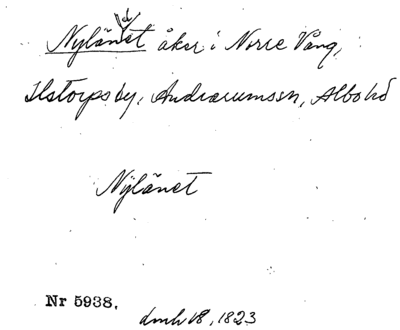 Nylänet åker i Norre Vång,
Ilstorps by, Andrarums sn, Albo hd
Nylänet
Nr 5938.
dmh 18, 1823